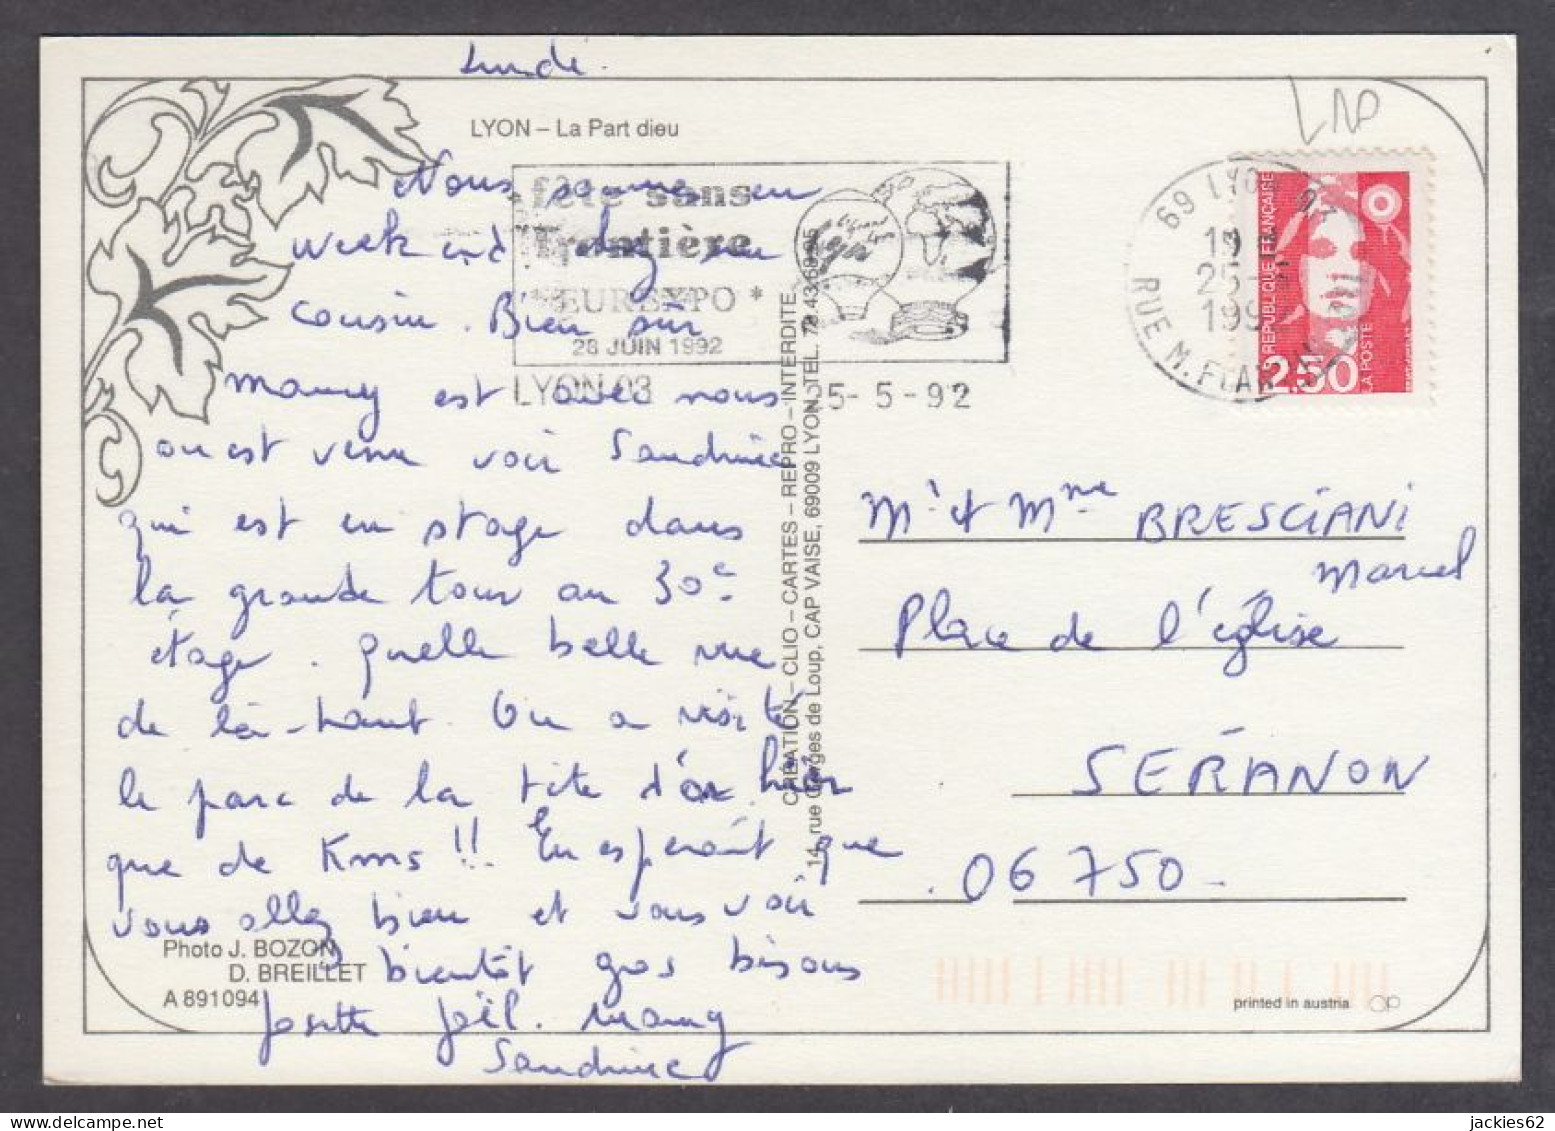 Lundi.
LYON – La Part dieu
Nous sommes en
week end chez un
cousin. Bien sûr
mamy est avec nous
on est venu voir Sandrine
qui est en stage dans
la grande tour au 30e
étage. Quelle belle vue
de là-haut. On a visité
le parc de la tête d'or hier
que de Kms !! En espérant que
vous allez bien et vous voir
bientôt gros bisous
Josette Joël. Mamy
Sandrine
Photo J. BOZON
D. BREILLET
A 891094
fête sans
frontière
* EUREXPO *
28 JUIN 1992
LYON 03
25-5-92
CRÉATION – CLIO – CARTES – REPRO – INTERDITE
14, rue Gorges de Loup, CAP VAISE, 69009 LYON, TEL.
69 LYON
RUE M. FLANDIN
19
25-5
1992
RÉPUBLIQUE FRANÇAISE
2,50
LA POSTE
Mr et Mme BRESCIANI
Marcel
Place de l'église
SÉRANON
06750
printed in austria
jackies62